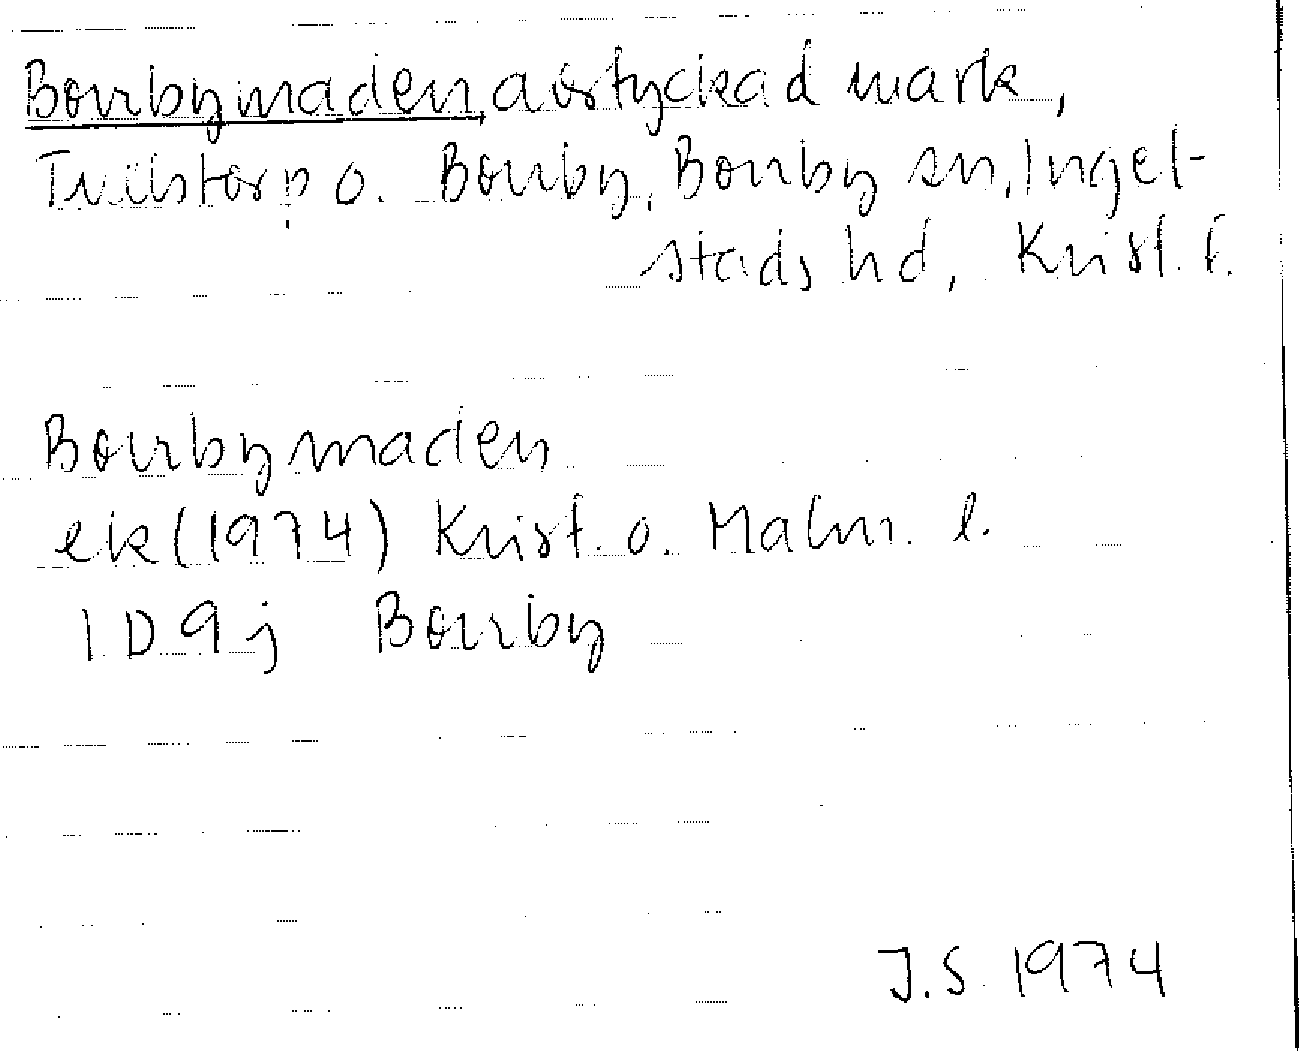 Borrbymaden, avstyckad mark,
Tullstorp o. Borrby, Borrby sn, Ingel-
stads hd, Krist. l.
Borrbymaden
ek (1974) Krist. o. Malm. l.
1D9j Borrby
J.S. 1974